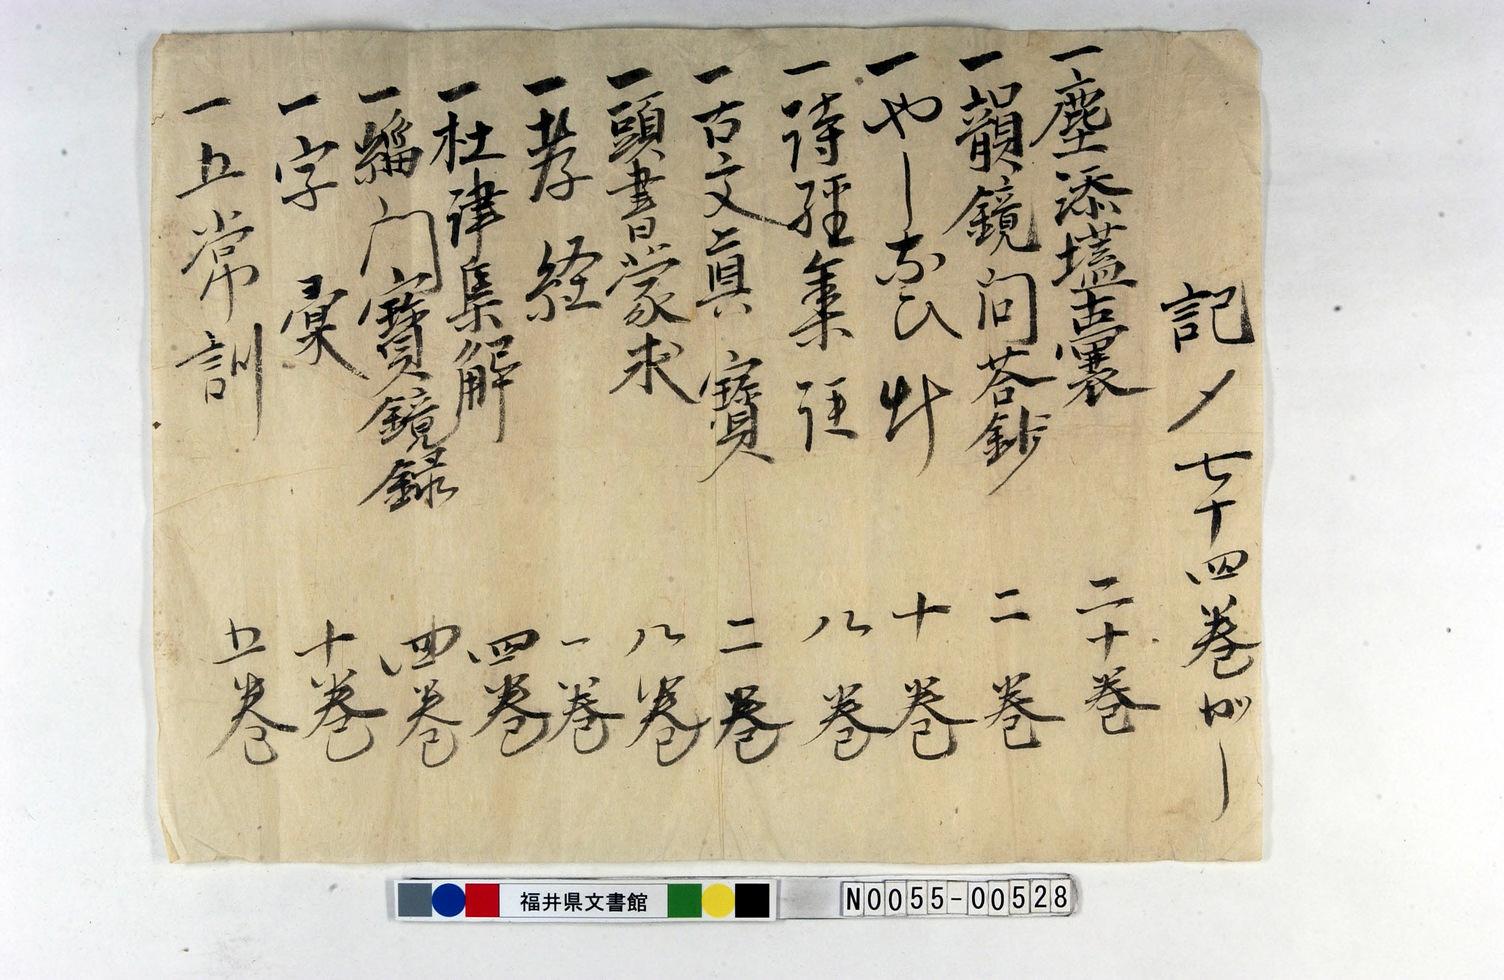 記〆七十四巻かし
一塵添壒囊 二十巻
一韻鏡問荅鈔 二巻
一やしなひ艸 十巻
一詩經集註 八巻
一古文眞寶 二巻
一頭書蒙求 八巻
一孝経 一巻
一杜律集解 四巻
一緇門寶鏡録 四巻
一字彙 十巻
一五常訓 五巻
福井県文書館
N0055-00528